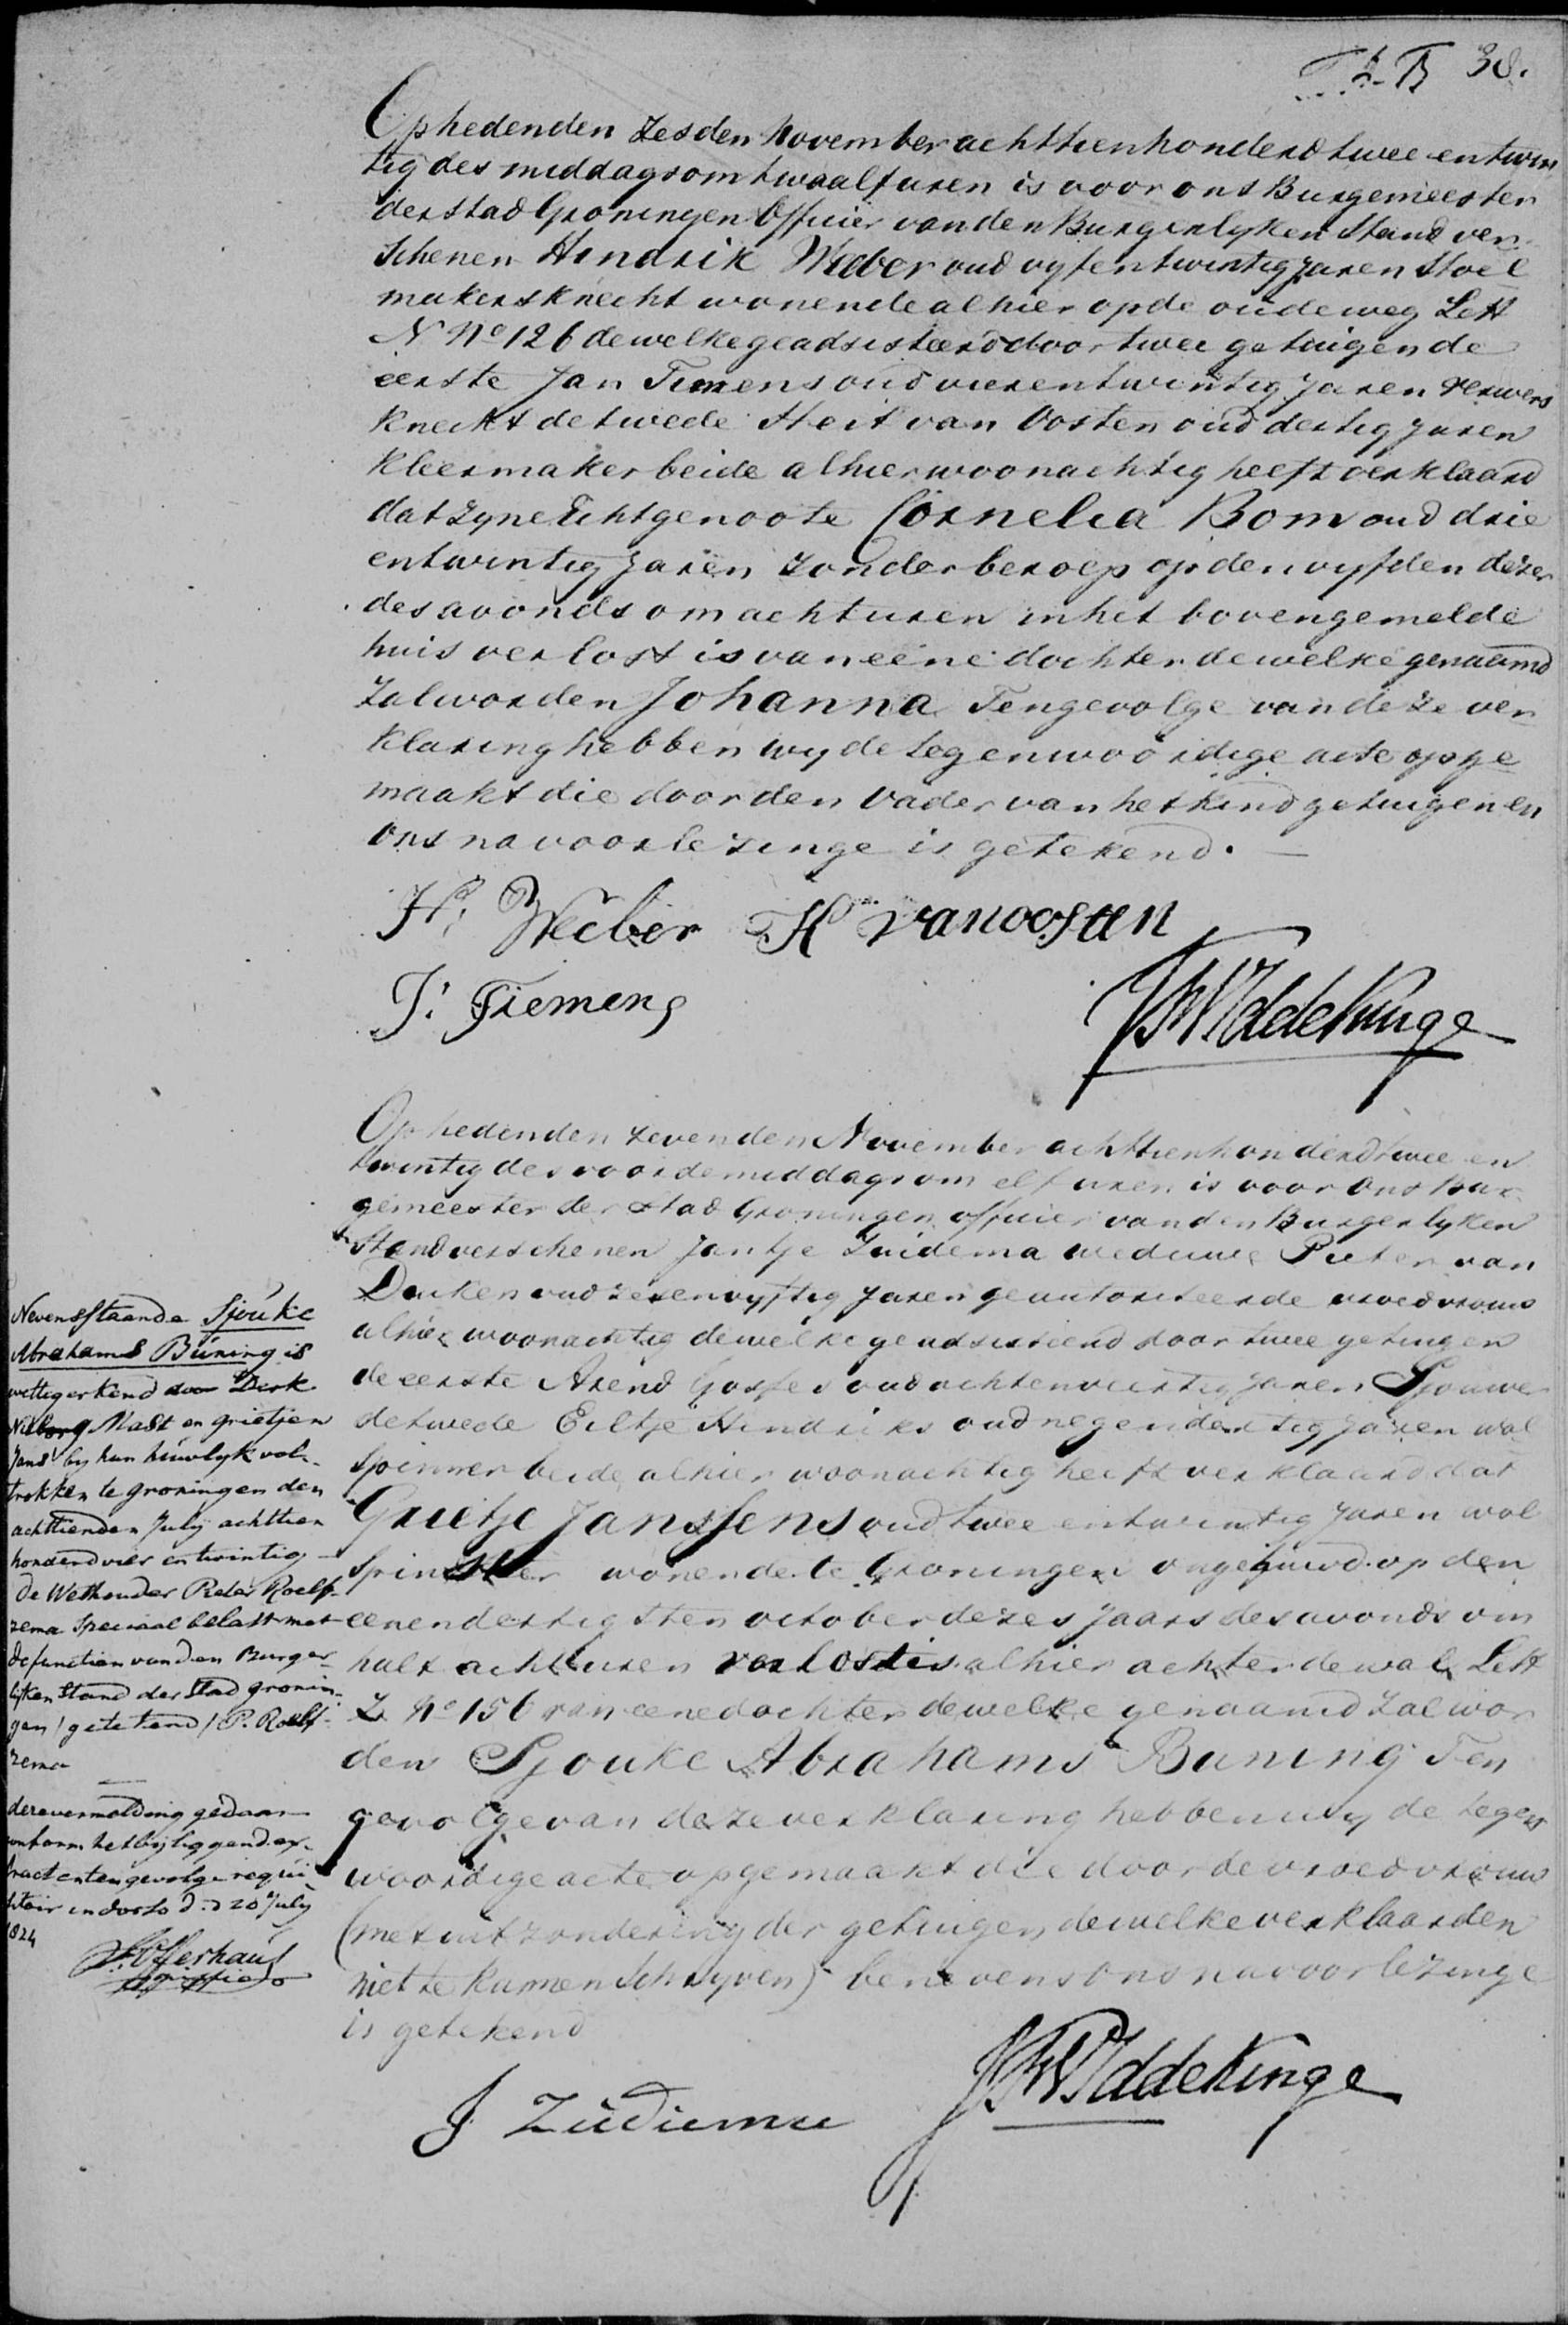 38.
Op heden den zesden November achttienhonderd twee en twin
tig des middags om twaalf uren is voor ons Burgemeester
der stad Groningen Officier van den Burgerlyken Stand ver
schenen Hindrik Weber oud vyf en twintig jaren Stoel
makersknecht wonende alhier op de oude weg Lett
N No 126 dewelke geadsisteerd door twee getuigen de
eerste Jan Tiemens oud vier en twintig jaren verwers
knecht de twede Heit van Oosten oud dertig jaren
kleermaker beide alhier woonachtig heeft verklaard
dat zyne Echtgenoote Cornelia Bom oud drie
en twintig jaren zonder beroep op den vyfden dezer
des avonds om acht uren in het bovengemelde
huis verlost is van eene dochter dewelke genaamd
zal worden Johanna Tengevolge van deze ver
klaring hebben wy de tegenwoordige acte opge
maakt die door den vader van het kind getuigen en
ons na voorlezinge is getekend.
H: Weber H van oosten
J: Tiemens
Op heden den zevenden November achttienhonderd twee en
twintig des voordemiddags om elf uren is voor ons Bur
gemeester der stad Groningen officier van den Burgerlyken
Stand verschenen Jantje Zuidema weduwe Pieter van
Duiken oud zeven en vyftig jaren geautoriteerde vroedvrouw
alhier woonachtig dewelke geadsisteerd door twee getuigen
de eerste Arend Gosses oud acht en veertig jaren Sjouwer
de twede Eiltje Hindriks oud negen en dertig jaren wol
spinner beide alhier woonachtig heeft verklaard dat
Grietje Janssens oud twee en twintig jaren wol
spinster wonende te Groningen ongehuwd op den
eenendertigsten october dezes jaars des avonds om
half acht uren verlost is alhier achter de wal Lett
Z No 156 van eene dochter dewelke genaamd zal wor
den Sjouke Abrahams Buning Ten
gevolge van deze verklaring hebben wy de tegen
woordige acte opgemaakt die door de vroedvrouw
(met uitzondering der getuigen dewelke verklaarden
niet te kunnen schryven) benevens ons na voorlezinge
is getekend
J Zudiema
J W Iddekinge
Nevensstaande Sjouke
Abrahams Buning is
wettig erkend door Derk
Mast en grietjen
Jans by hun huwlyk vol-
trokken te groningen den
achttienden July achttien
honderd vier en twintig
de Wethouder Pieter Roelf-
zema Speciaal belast met
de functien van den Burger-
lyken Stand der Stad gronin-
gen / getekend / P. Roelf-
zema
deze vermelding gedaan
conform het byliggend ex-
tract en ten gevolge requi
sitoir in dorso d.d 20 July
1824